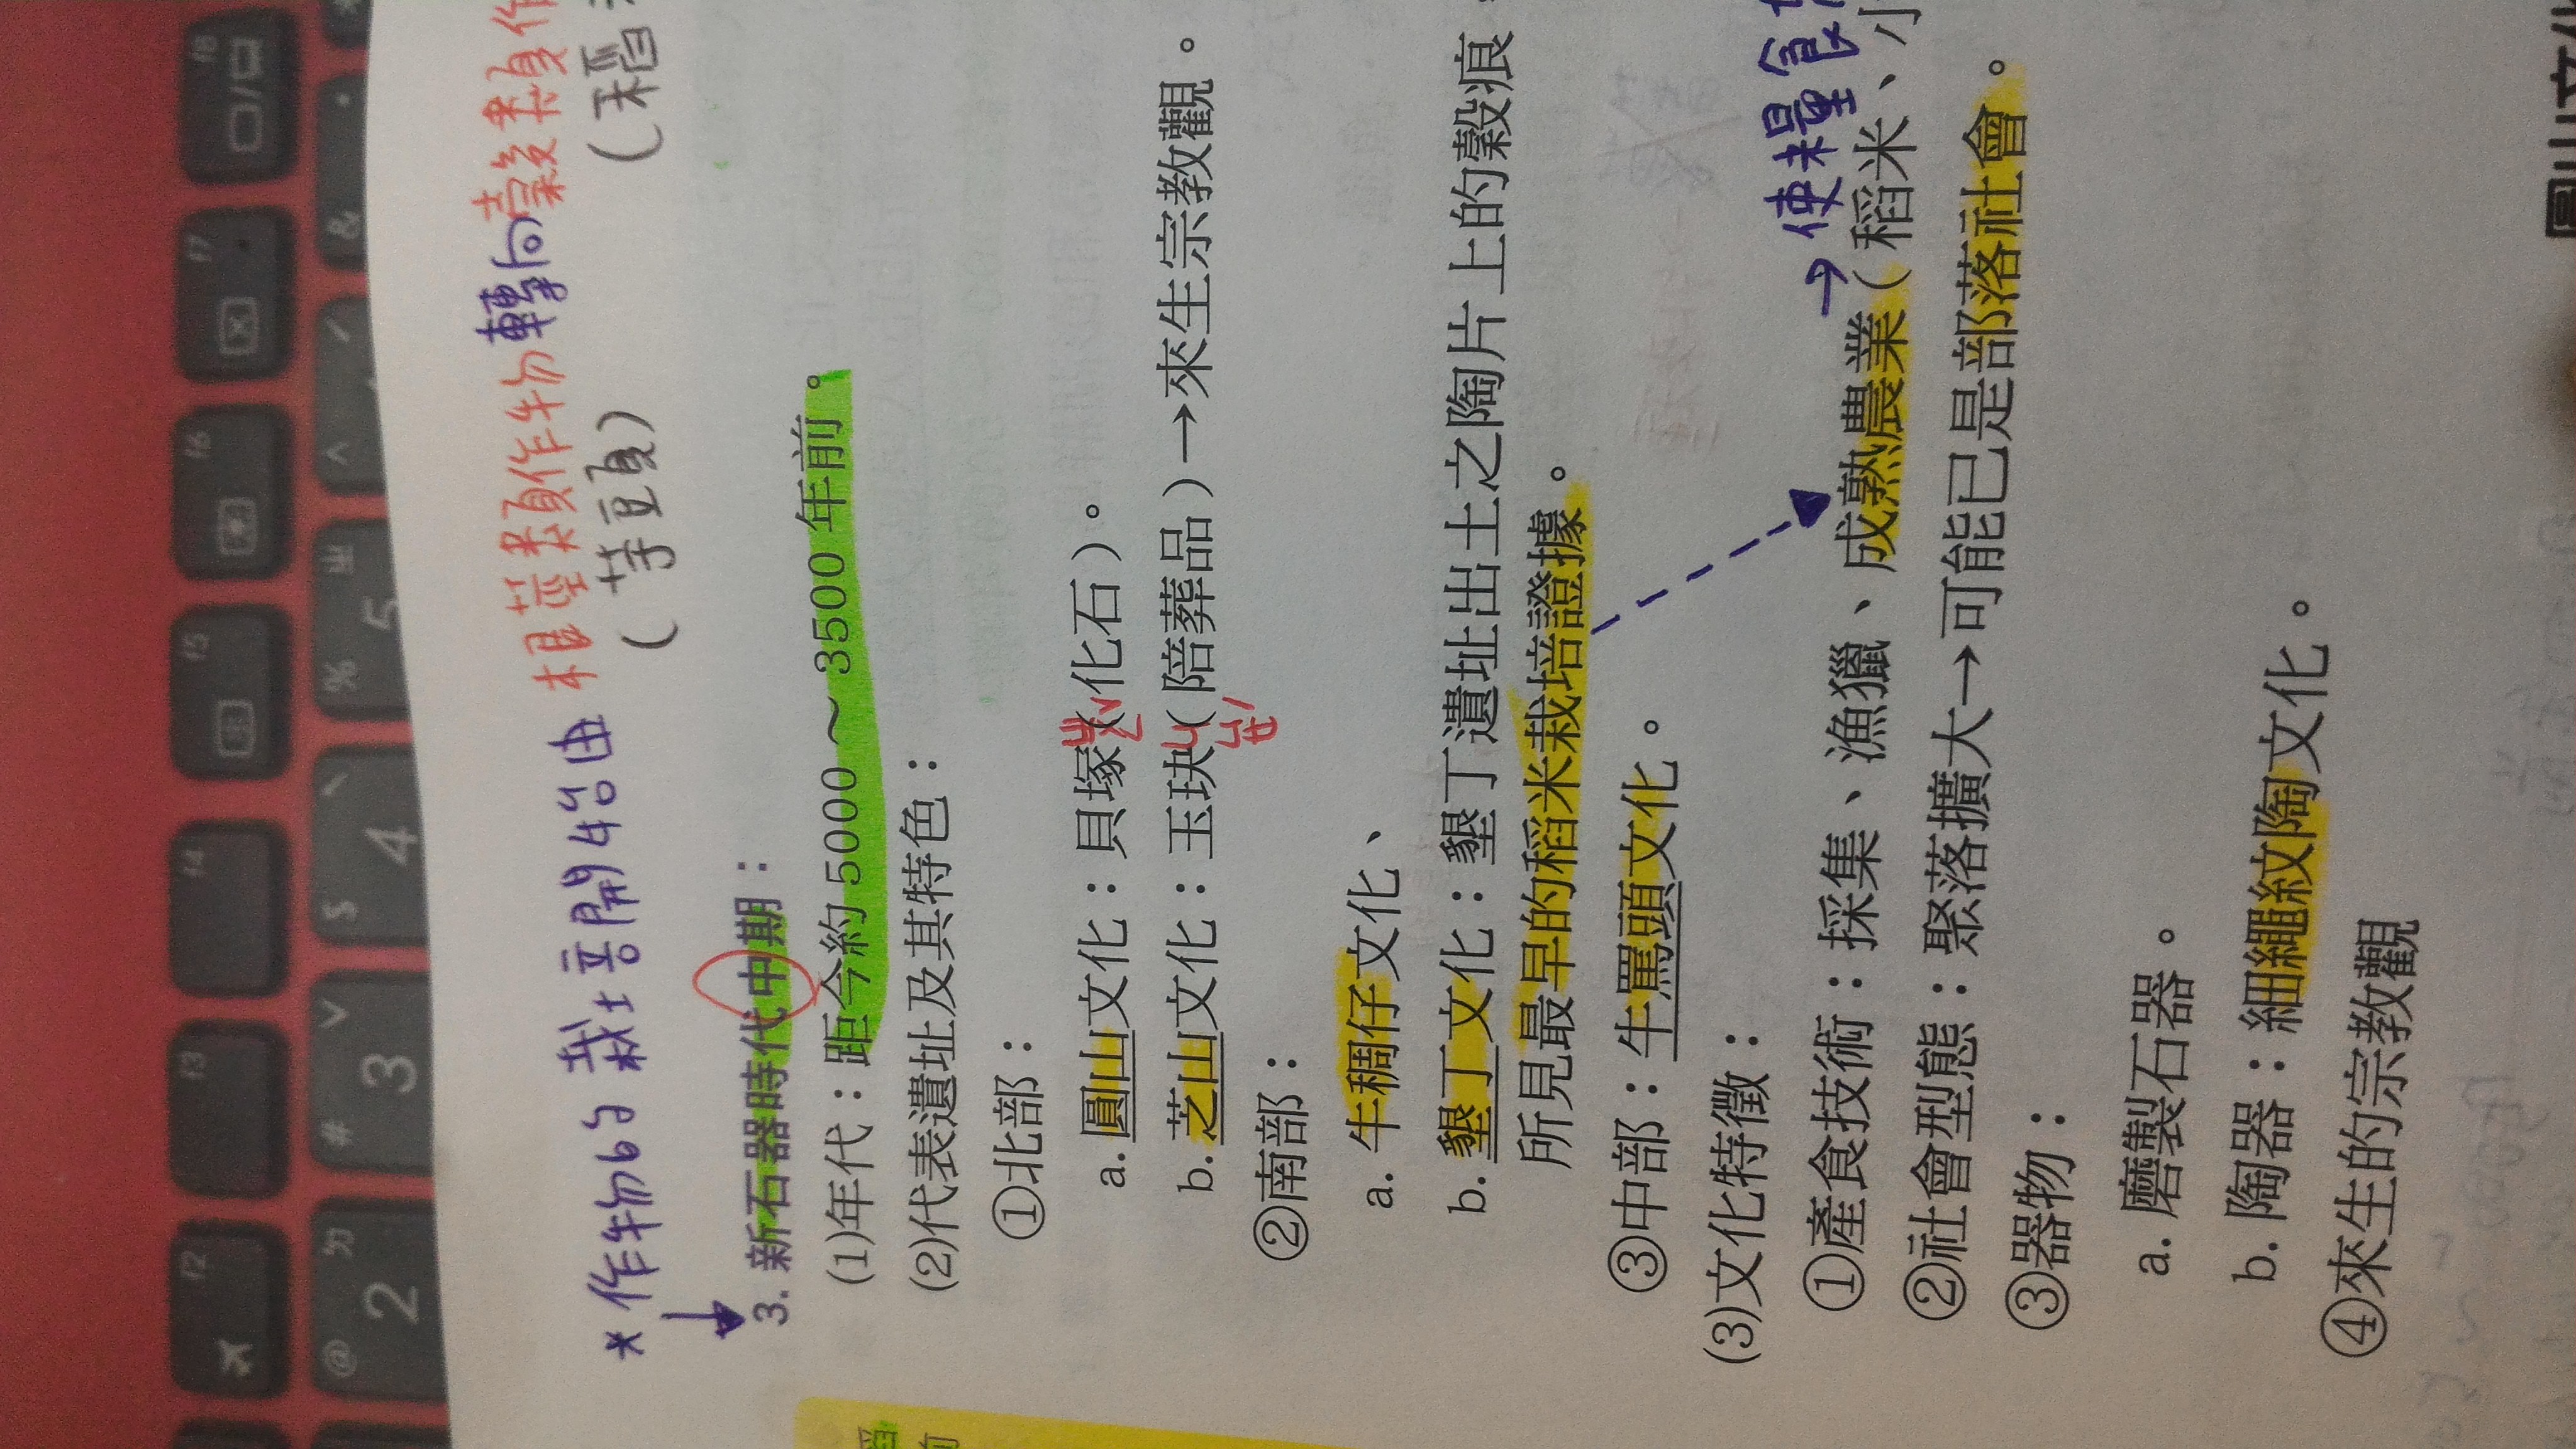 *作物的栽培開始由根莖類作物轉向穀類作
(芋頭) (稻
3. 新石器時代中期：
(1)年代：距今約 5000～3500 年前。
(2)代表遺址及其特色：
①北部：
a. 圓山文化：貝塚(化石)。
ㄓㄨㄥˇ
b. 芝山文化：玉玦(陪葬品)→來生宗教觀。
ㄐㄩㄝˊ
②南部：
a. 牛稠仔文化、
b. 墾丁文化：墾丁遺址出土之陶片上的穀痕
所見最早的稻米栽培證據。
③中部：牛罵頭文化。
(3)文化特徵：
→使糧食
①產食技術：採集、漁獵、成熟農業(稻米、小
②社會型態：聚落擴大→可能已是部落社會。
③器物：
a. 磨製石器。
b. 陶器：細繩紋陶文化。
④來生的宗教觀
圓山文化
F2 F3 F4 F5 F6 F7 F8
@ 2 ㄉ # 3 ˇ $ 4 ˋ % 5 ㄓ ^ ˊ &